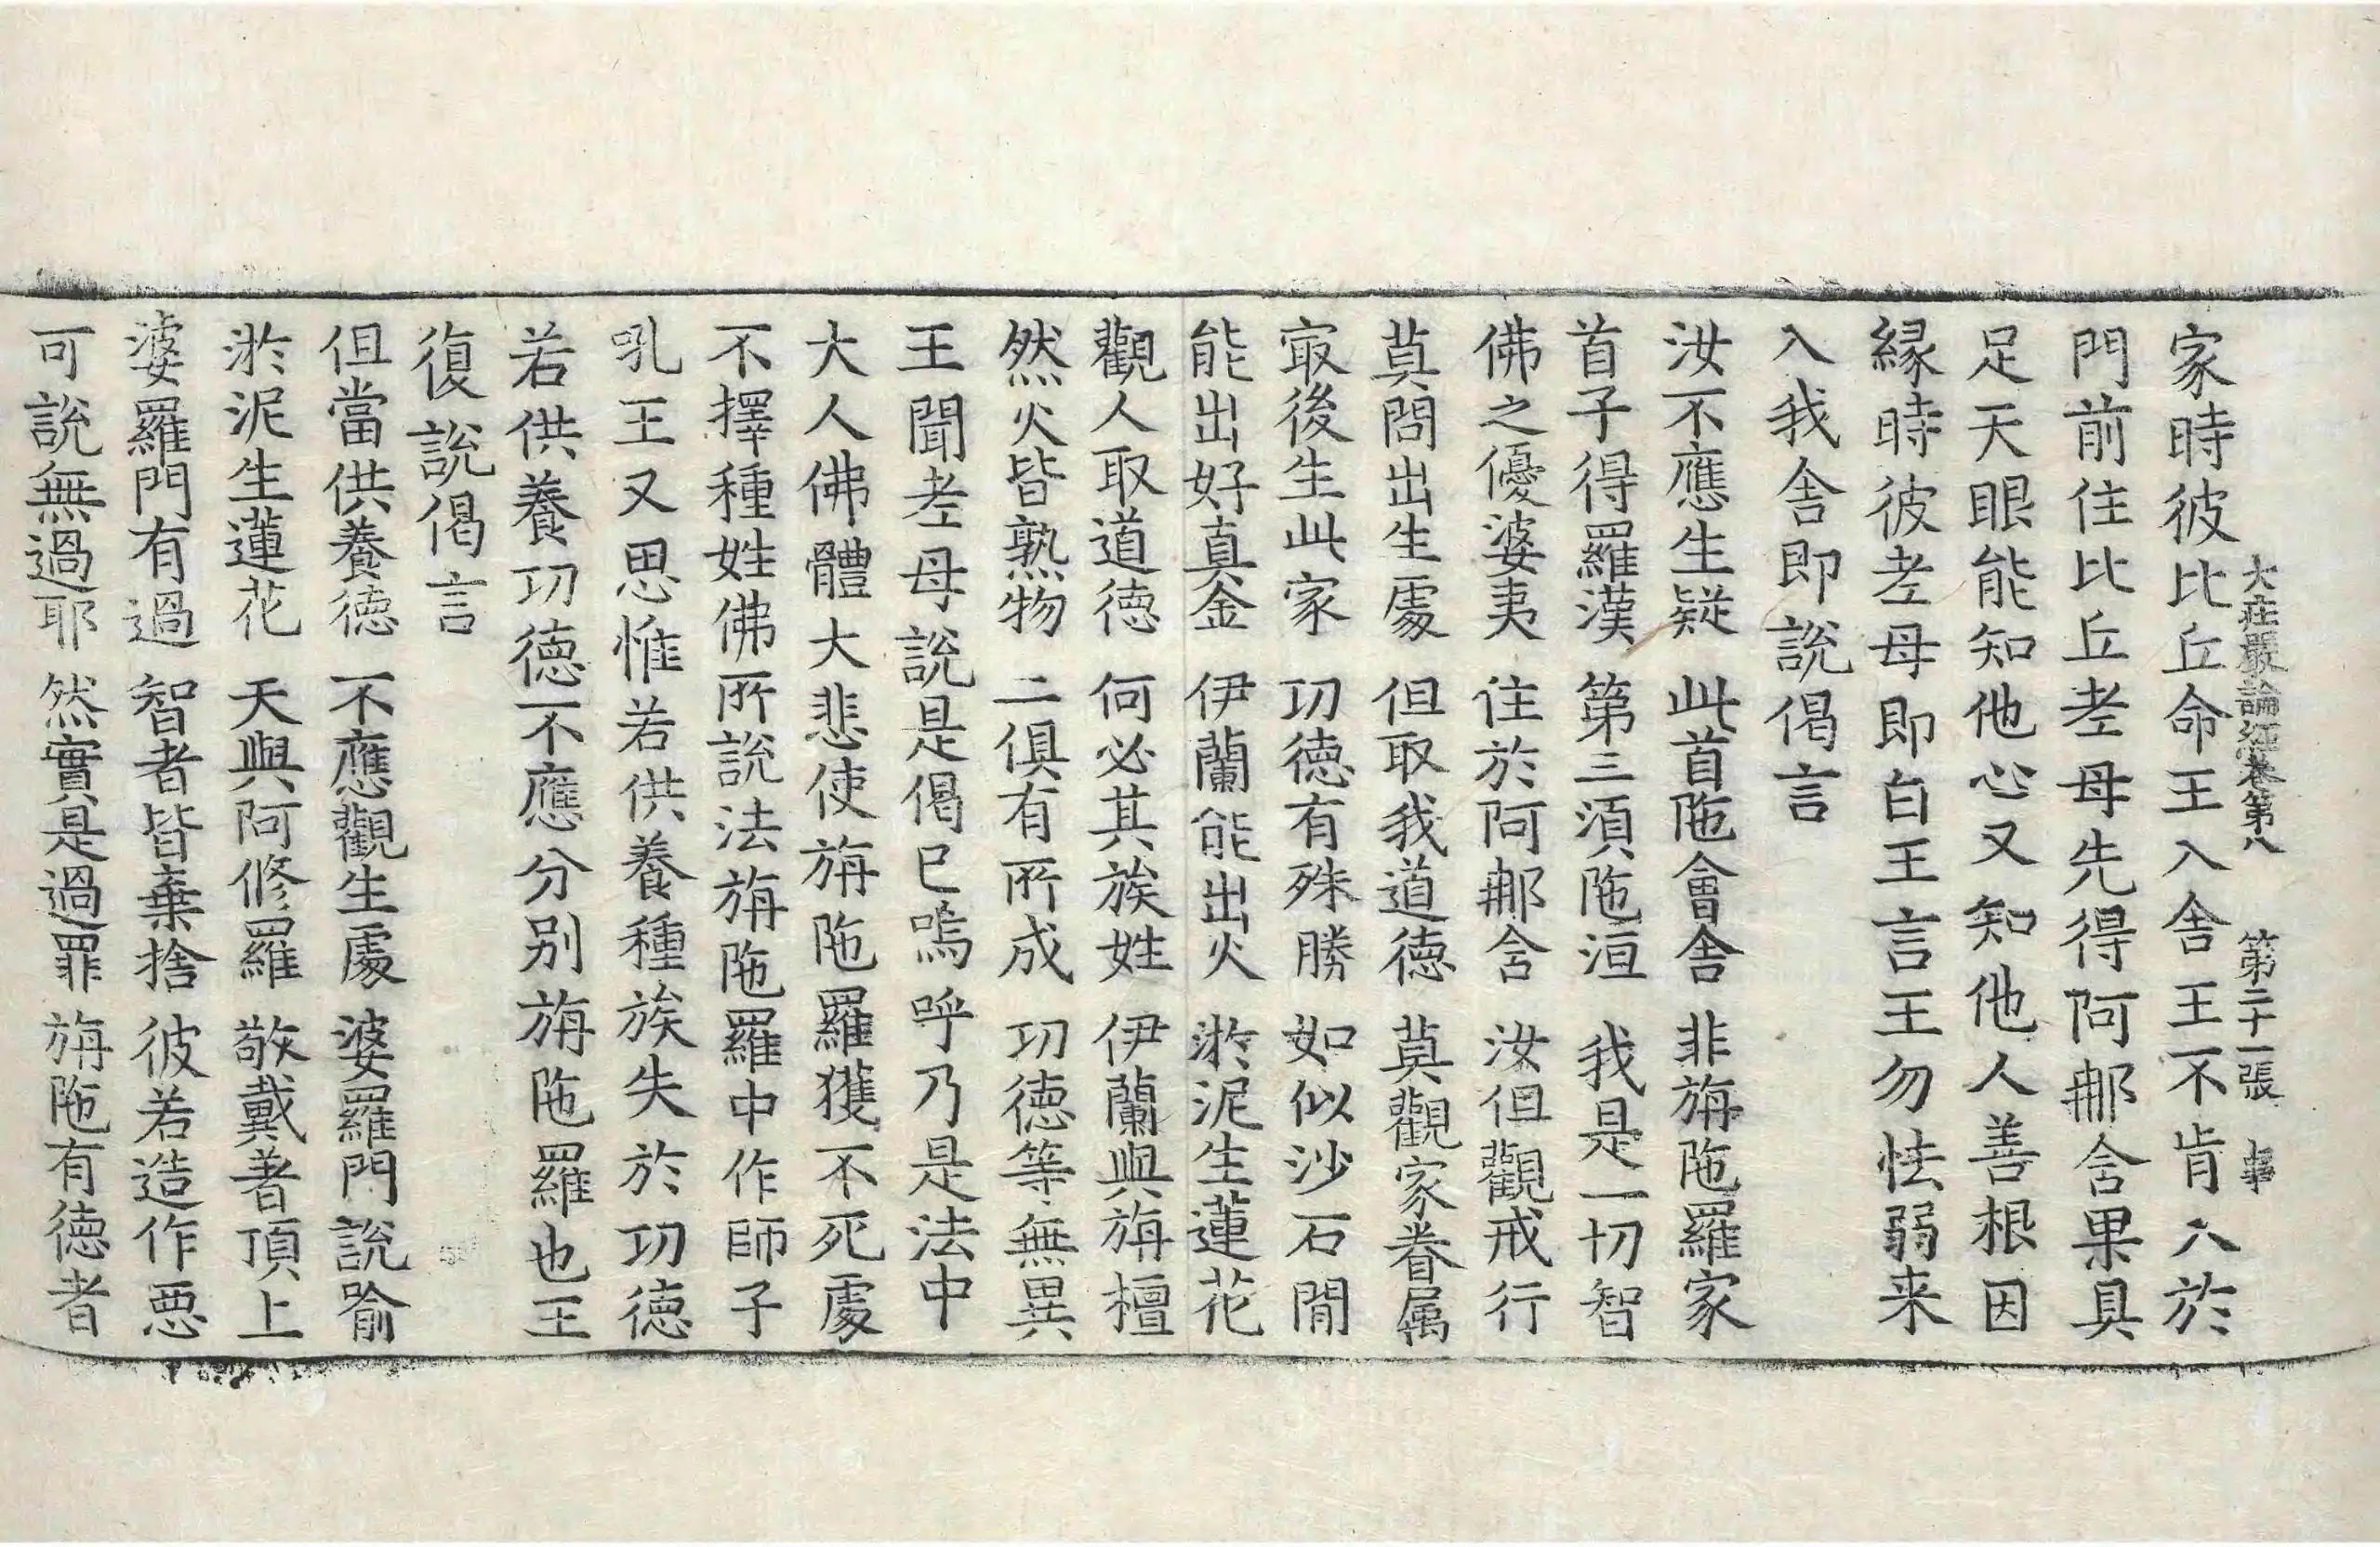 大荘嚴論經卷第八 第二十一張
家時彼比丘命王入舍王不肯入於
門前住比丘老母先得阿那含果具
足天眼能知他心又知他人善根因
縁時彼老母即白王言王勿怯弱来
入我舍即說偈言
汝不應生疑 此首陁會舍 非旃陁羅家
首子得羅漢 第三須陁洹 我是一切智
佛之優婆夷 住於阿那含 汝但觀戒行
莫問出生處 但取我道德 莫觀家眷属
㝡後生此家 功德有殊勝 如似沙石閒
能出好真金 伊蘭能出火 淤泥生蓮花
觀人取道德 何必其族姓 伊蘭與旃檀
然火皆熟物 二俱有所成 功德等無異
王聞老母說是偈已嗚呼乃是法中
大人佛體大悲使旃陁羅獲不死處
不擇種姓佛所說法旃陁羅中作師子
吼王又思惟若供養種族失於功德
若供養功德不應分别旃陁羅也王
復說偈言
但當供養德 不應觀生處 婆羅門說喻
淤泥生蓮花 天與阿修羅 敬戴著頂上
婆羅門有過 智者皆棄捨 彼若造作惡
可說無過耶 然實是過罪 旃陁有德者